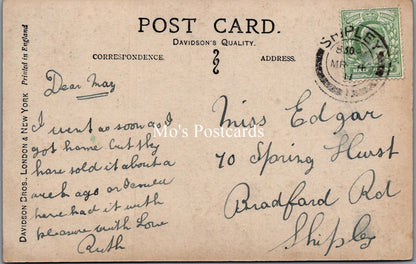 POST CARD.
DAVIDSON'S QUALITY.
CORRESPONDENCE.
ADDRESS.
DAVIDSON BROS., LONDON & NEW YORK Printed in England
Dear May
I went as soon as I
got home but they
have sold it about a
week ago or
have had it with
pleasure with Love
Ruth
Miss Edgar
70 Spring Hurst
Bradford Rd
Shipley
Mo's Postcards
SHIPLEY
11
HALF